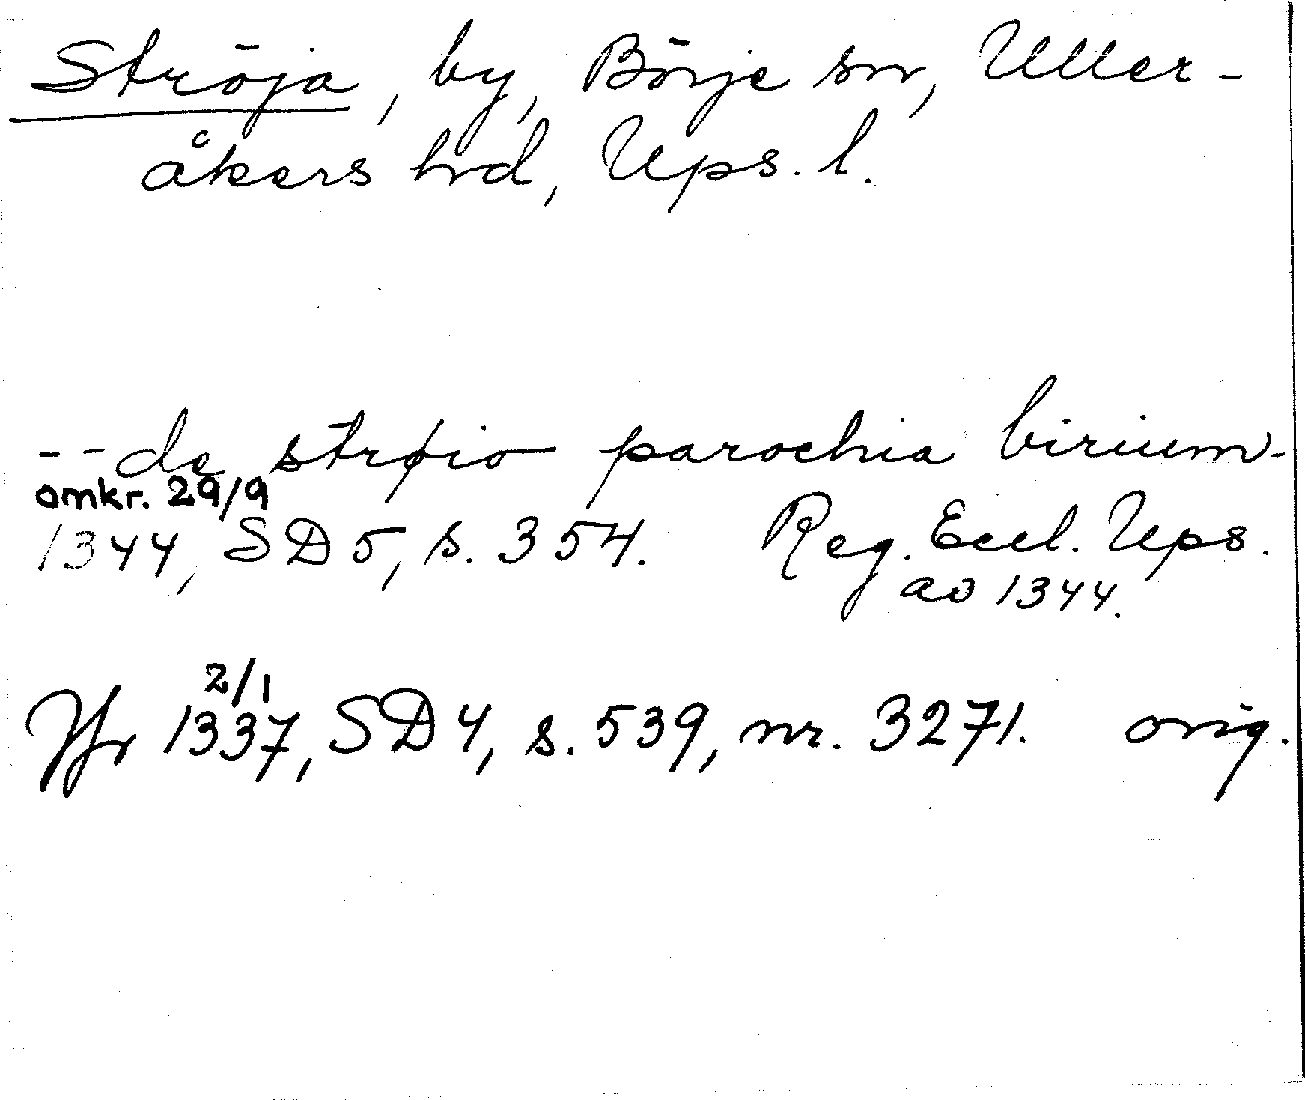 Ströja, by, Börje sn, Uller-
åkers hrd, Ups. l.
-- de strøio parochia birium-
omkr. 29/9
1344, SD 5, s. 354. Reg. Eccl. Ups.
ao 1344.
2/1
Jfr 1337, SD 4, s. 539, nr. 3271. orig.